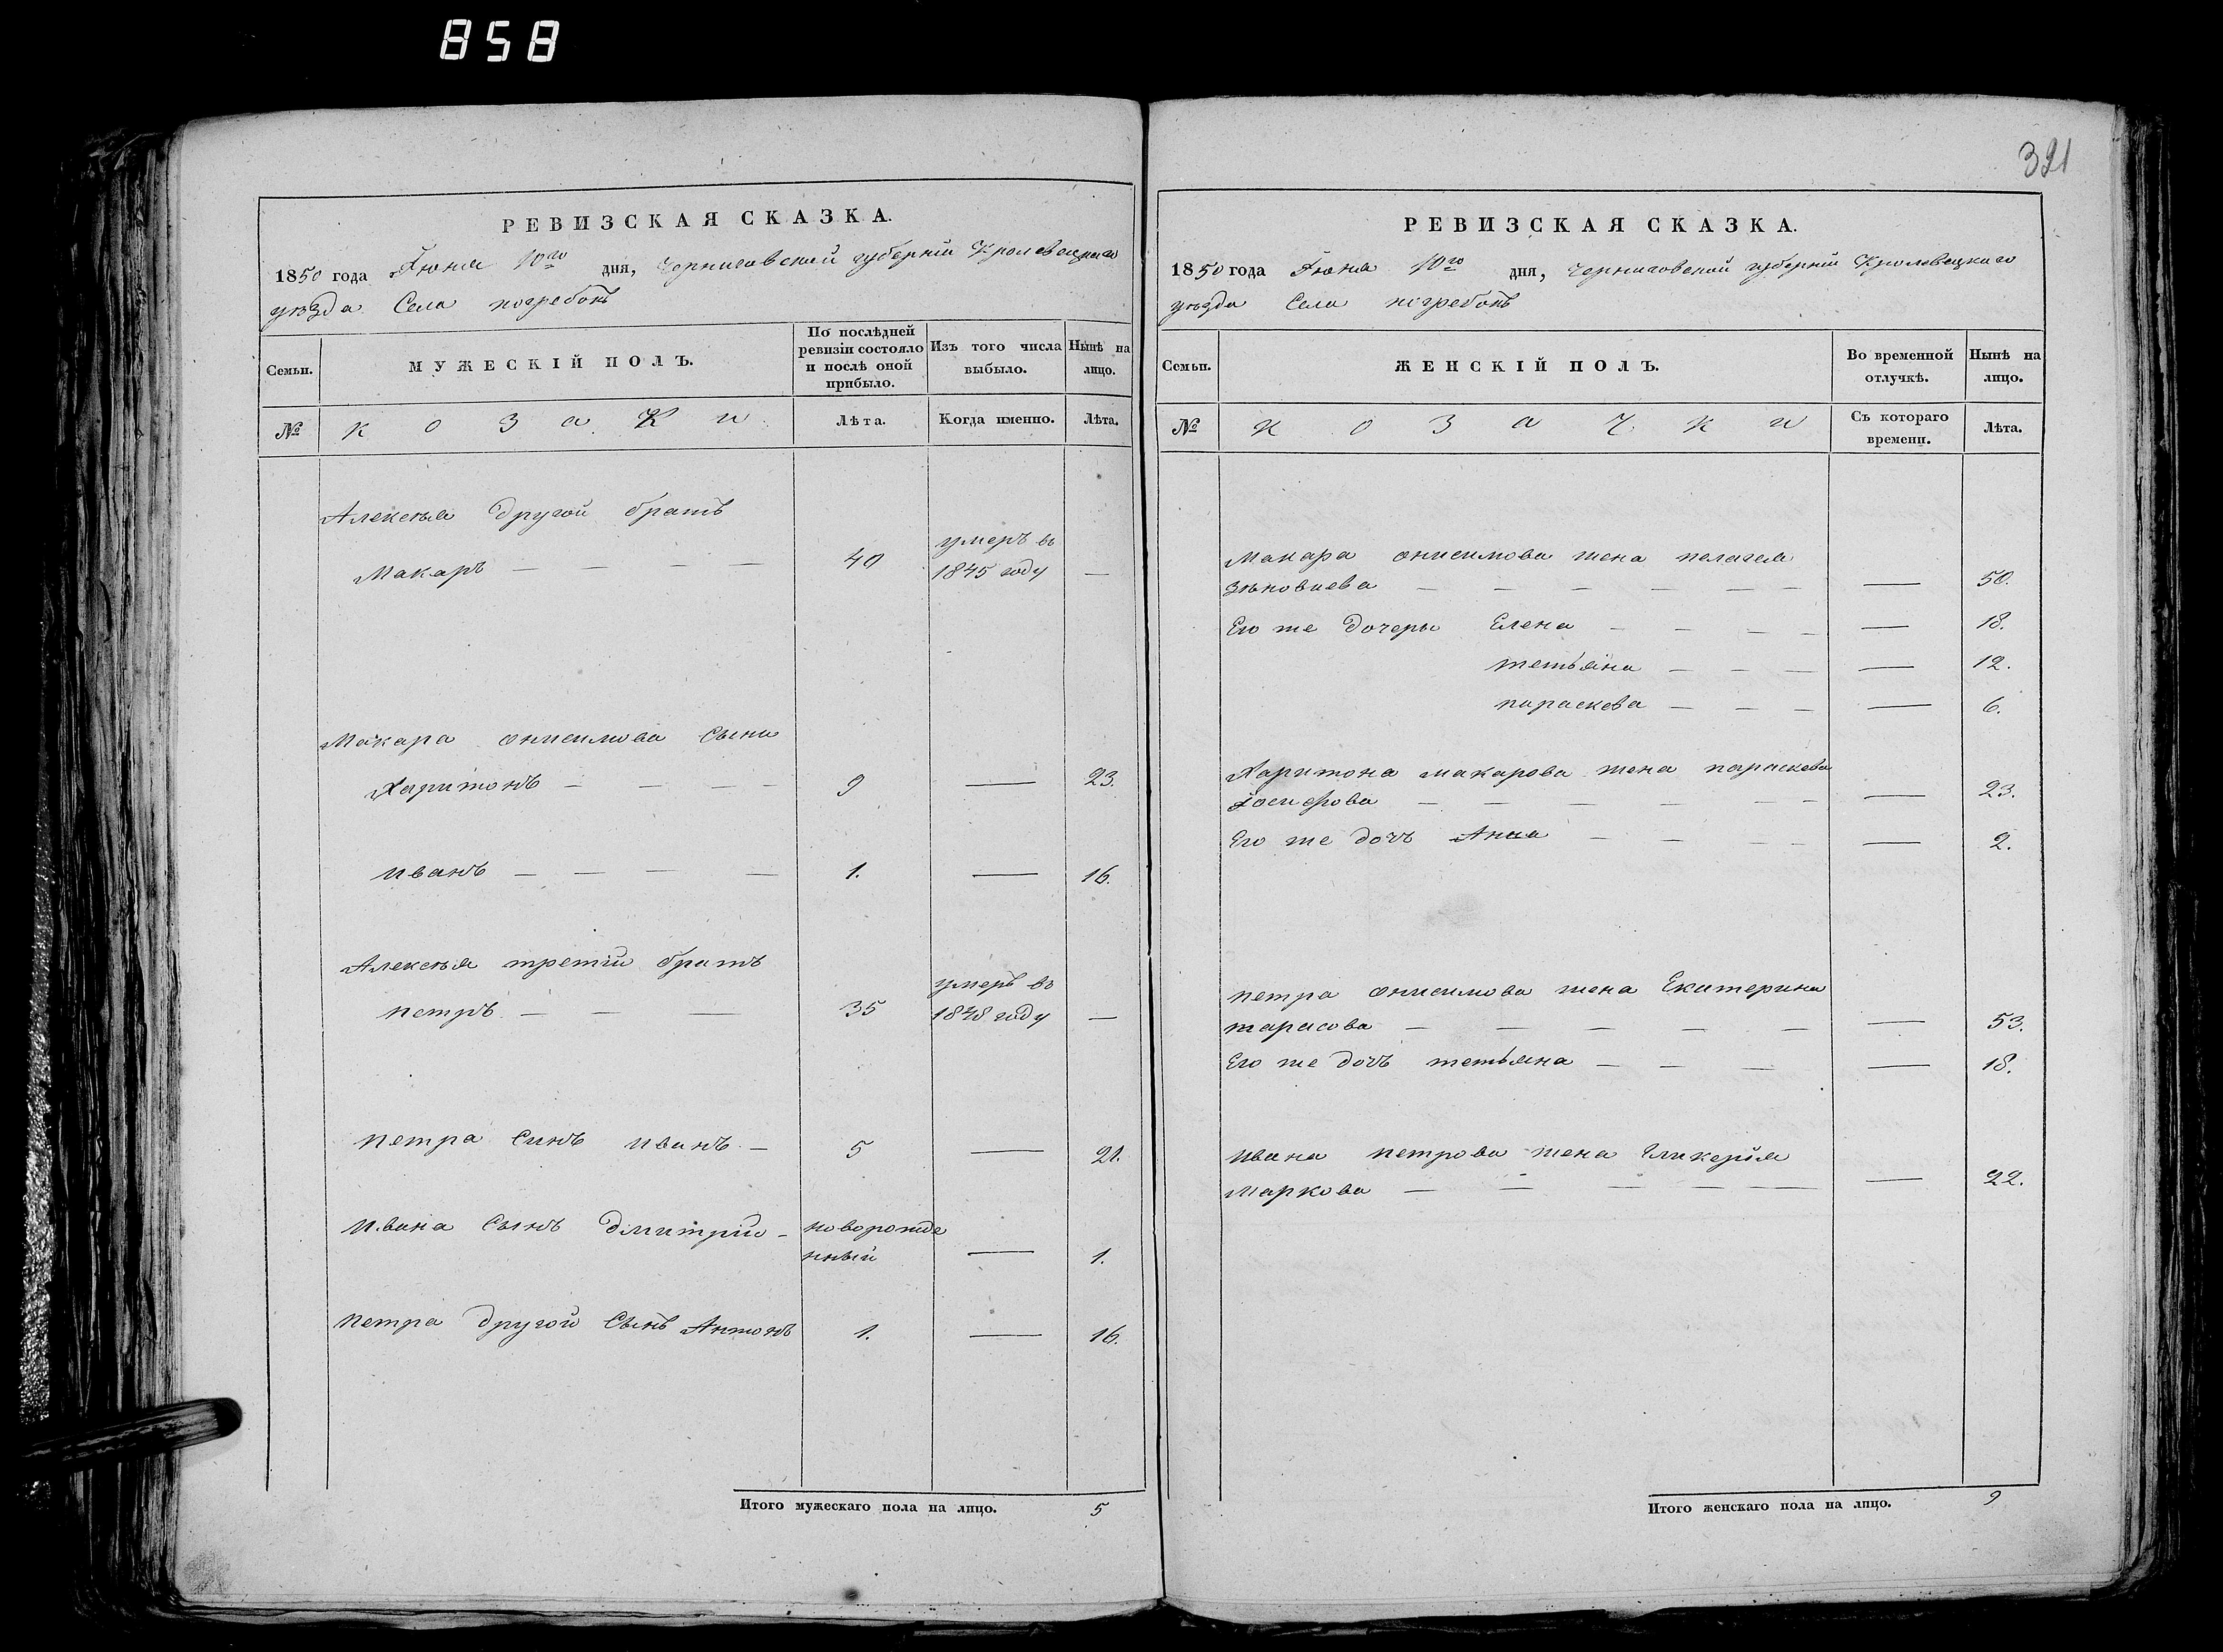 858
321
РЕВИЗСКАЯ СКАЗКА.
1850 года Іюня 10го дня, Черниговской губерніи Кролевецкаго
уѣзда Села погребокъ
Семьи.
МУЖЕСКІЙ ПОЛЪ.
По послѣдней
ревизіи состояло
и послѣ оной
прибыло.
Изъ того числа
выбыло.
Нынѣ на
лицо.
№
козаки
Лѣта.
Когда именно.
Лѣта.
Алексѣя другой братъ
умеръ въ
Макаръ — — — — 40 1845 году —
Макара онисимова сыни
Харитонъ — — — — 9 — 23.
иванъ — — — — 1. — 16.
Алексѣя третіи братъ
умеръ въ
петръ — — — 35 1848 году —
петра Синъ иванъ — 5 — 21.
ивана Сынъ дмитрій — новорожде
нный — 1.
петра другой Сынъ Антонъ 1. — 16.
Итого мужескаго пола на лицо. 5
РЕВИЗСКАЯ СКАЗКА.
1850 года Іюня 10го дня, Черниговской губерніи Кролевецкаго
уѣзда Села погребокъ
Семьи.
ЖЕНСКІЙ ПОЛЪ.
Во временной
отлучкѣ.
Нынѣ на
лицо.
№
козачки
Съ котораго
времени.
Лѣта.
Макара онисимова жена пелагея
зѣновиева — — — — — — — 50.
Его же дочеры Елена — — — — — 18.
тетьяна — — — — 12.
параскева — — — — 6.
Харитона макарова жена параскева
Іосифова — — — — — — — 23.
Его же дочъ Анна — — — — — 2.
петра онисимова жена Екатерина
тарасова — — — — — — 53.
Его же дочъ тетьяна — — — — 18.
ивана петрова жена Гликерія
Маркова — — — — — — 22.
Итого женскаго пола на лицо. 9